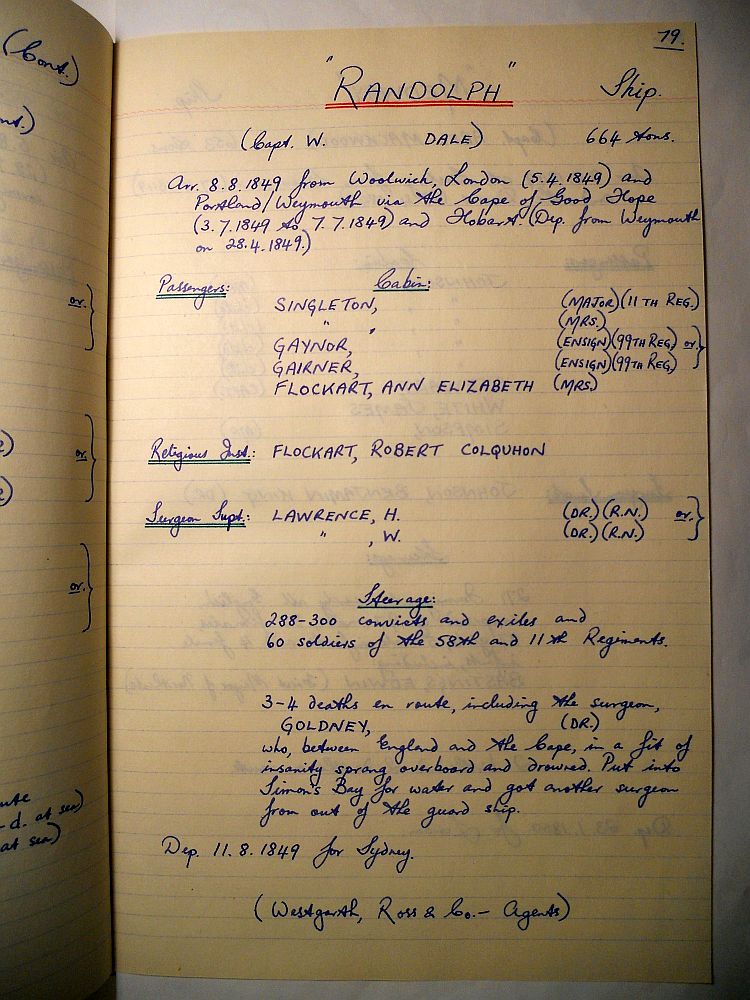 (Cont.)
or.
or.
or.
-d. at sea)
at sea)
79.
"RANDOLPH" Ship.
(Capt. W. DALE) 664 tons.
Arr. 8.8.1849 from Woolwich, London (5.4.1849) and
Portland/Weymouth via the Cape of Good Hope
(3.7.1849 to 7.7.1849) and Hobart. (Dep. from Weymouth
on 28.4.1849.)
Passengers: Cabin:
SINGLETON, (MAJOR)(11TH REG.)
" , (MRS.)
GAYNOR, (ENSIGN)(99TH REG.) or.
GAIRNER, (ENSIGN)(99TH REG.)
FLOCKART, ANN ELIZABETH (MRS.)
Religious Inst.: FLOCKART, ROBERT COLQUHON
Surgeon Supt.: LAWRENCE, H. (DR.)(R.N.) or.
" , W. (DR.)(R.N.)
Steerage:
288-300 convicts and exiles and
60 soldiers of the 58th and 11th Regiments.
3-4 deaths en route, including the surgeon,
GOLDNEY, (DR.)
who, between England and the Cape, in a fit of
insanity sprang overboard and drowned. Put into
Simon's Bay for water and got another surgeon
from out of the guard ship.
Dep. 11.8.1849 for Sydney.
(Westgarth, Ross & Co. - Agents)